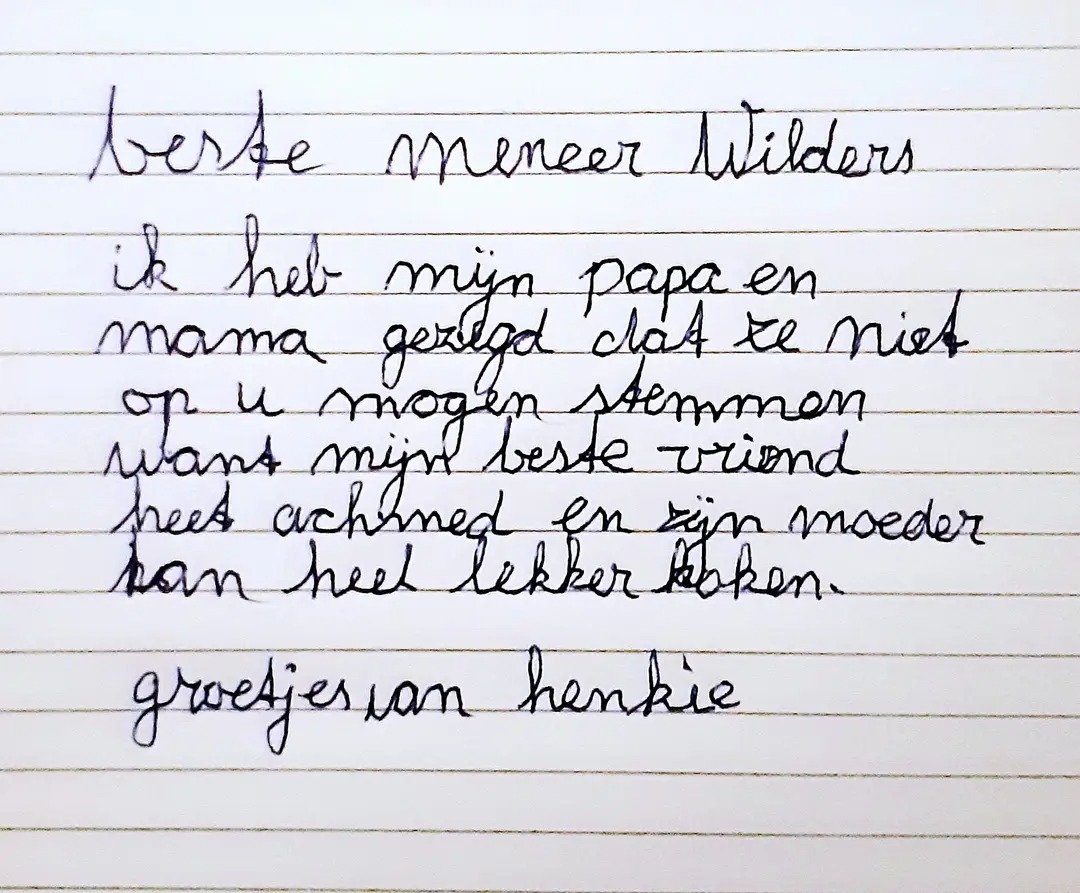 beste meneer Wilders
ik heb mijn papa en
mama gezegd dat ze niet
op u mogen stemmen
want mijn beste vriend
heet achmed en zijn moeder
kan heel lekker koken.
groetjes van henkie